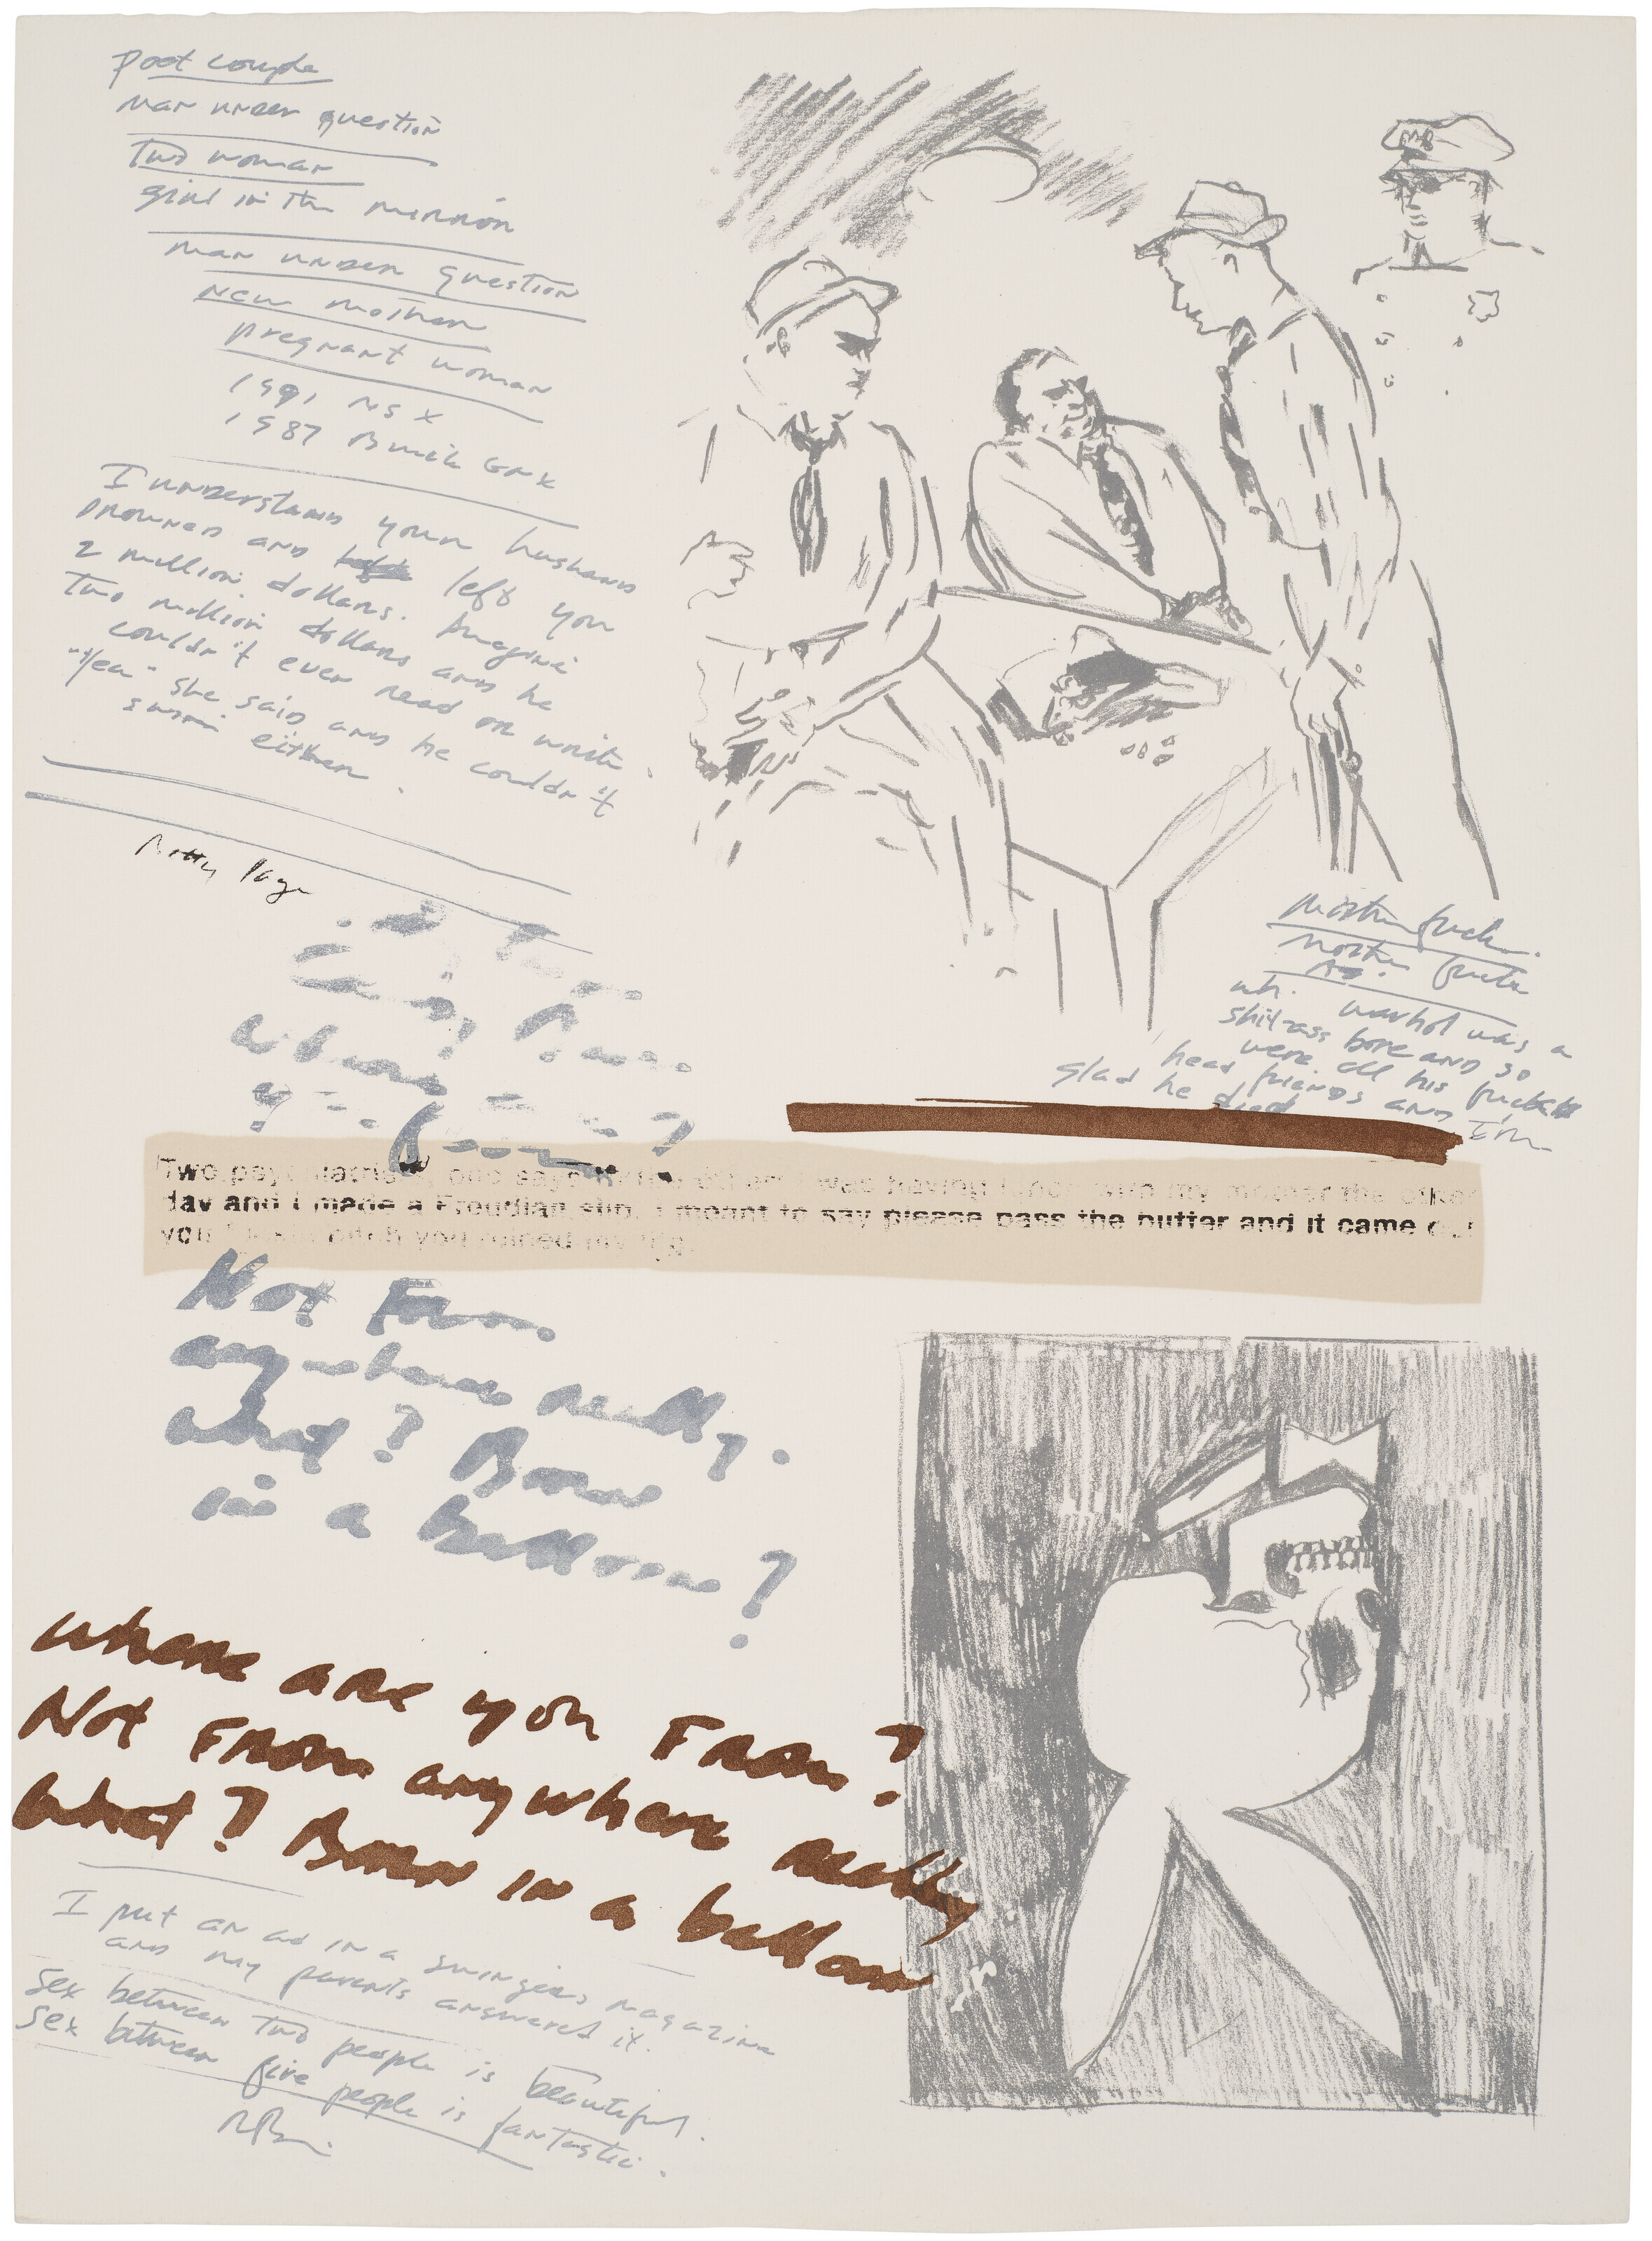 post couple
man under question
Two woman
girl in the mirror
man under question
new mother
pregnant woman
1991 NSX
1987 Buick GNX
I understand your husband
drowned and left you
2 million dollars. Imagine
two million dollars and he
couldn't even read or write.
"Yea" she said and he couldn't
swim either.
uh. warhol was a
shit-ass bore and so
were all his
head friends and I'm
glad he died
Two one say I was having my mother the other
day and I made a Freudian slip. I meant to say please pass the butter and it came out
you you ruined my life.
Not From
anywhere really.
what? Born
in a balloon?
where are you From?
Not From anywhere really
what? Born in a balloon
I put an ad in a swingers magazine
and my parents answered it.
Sex between two people is beautiful.
Sex between five people is fantastic.